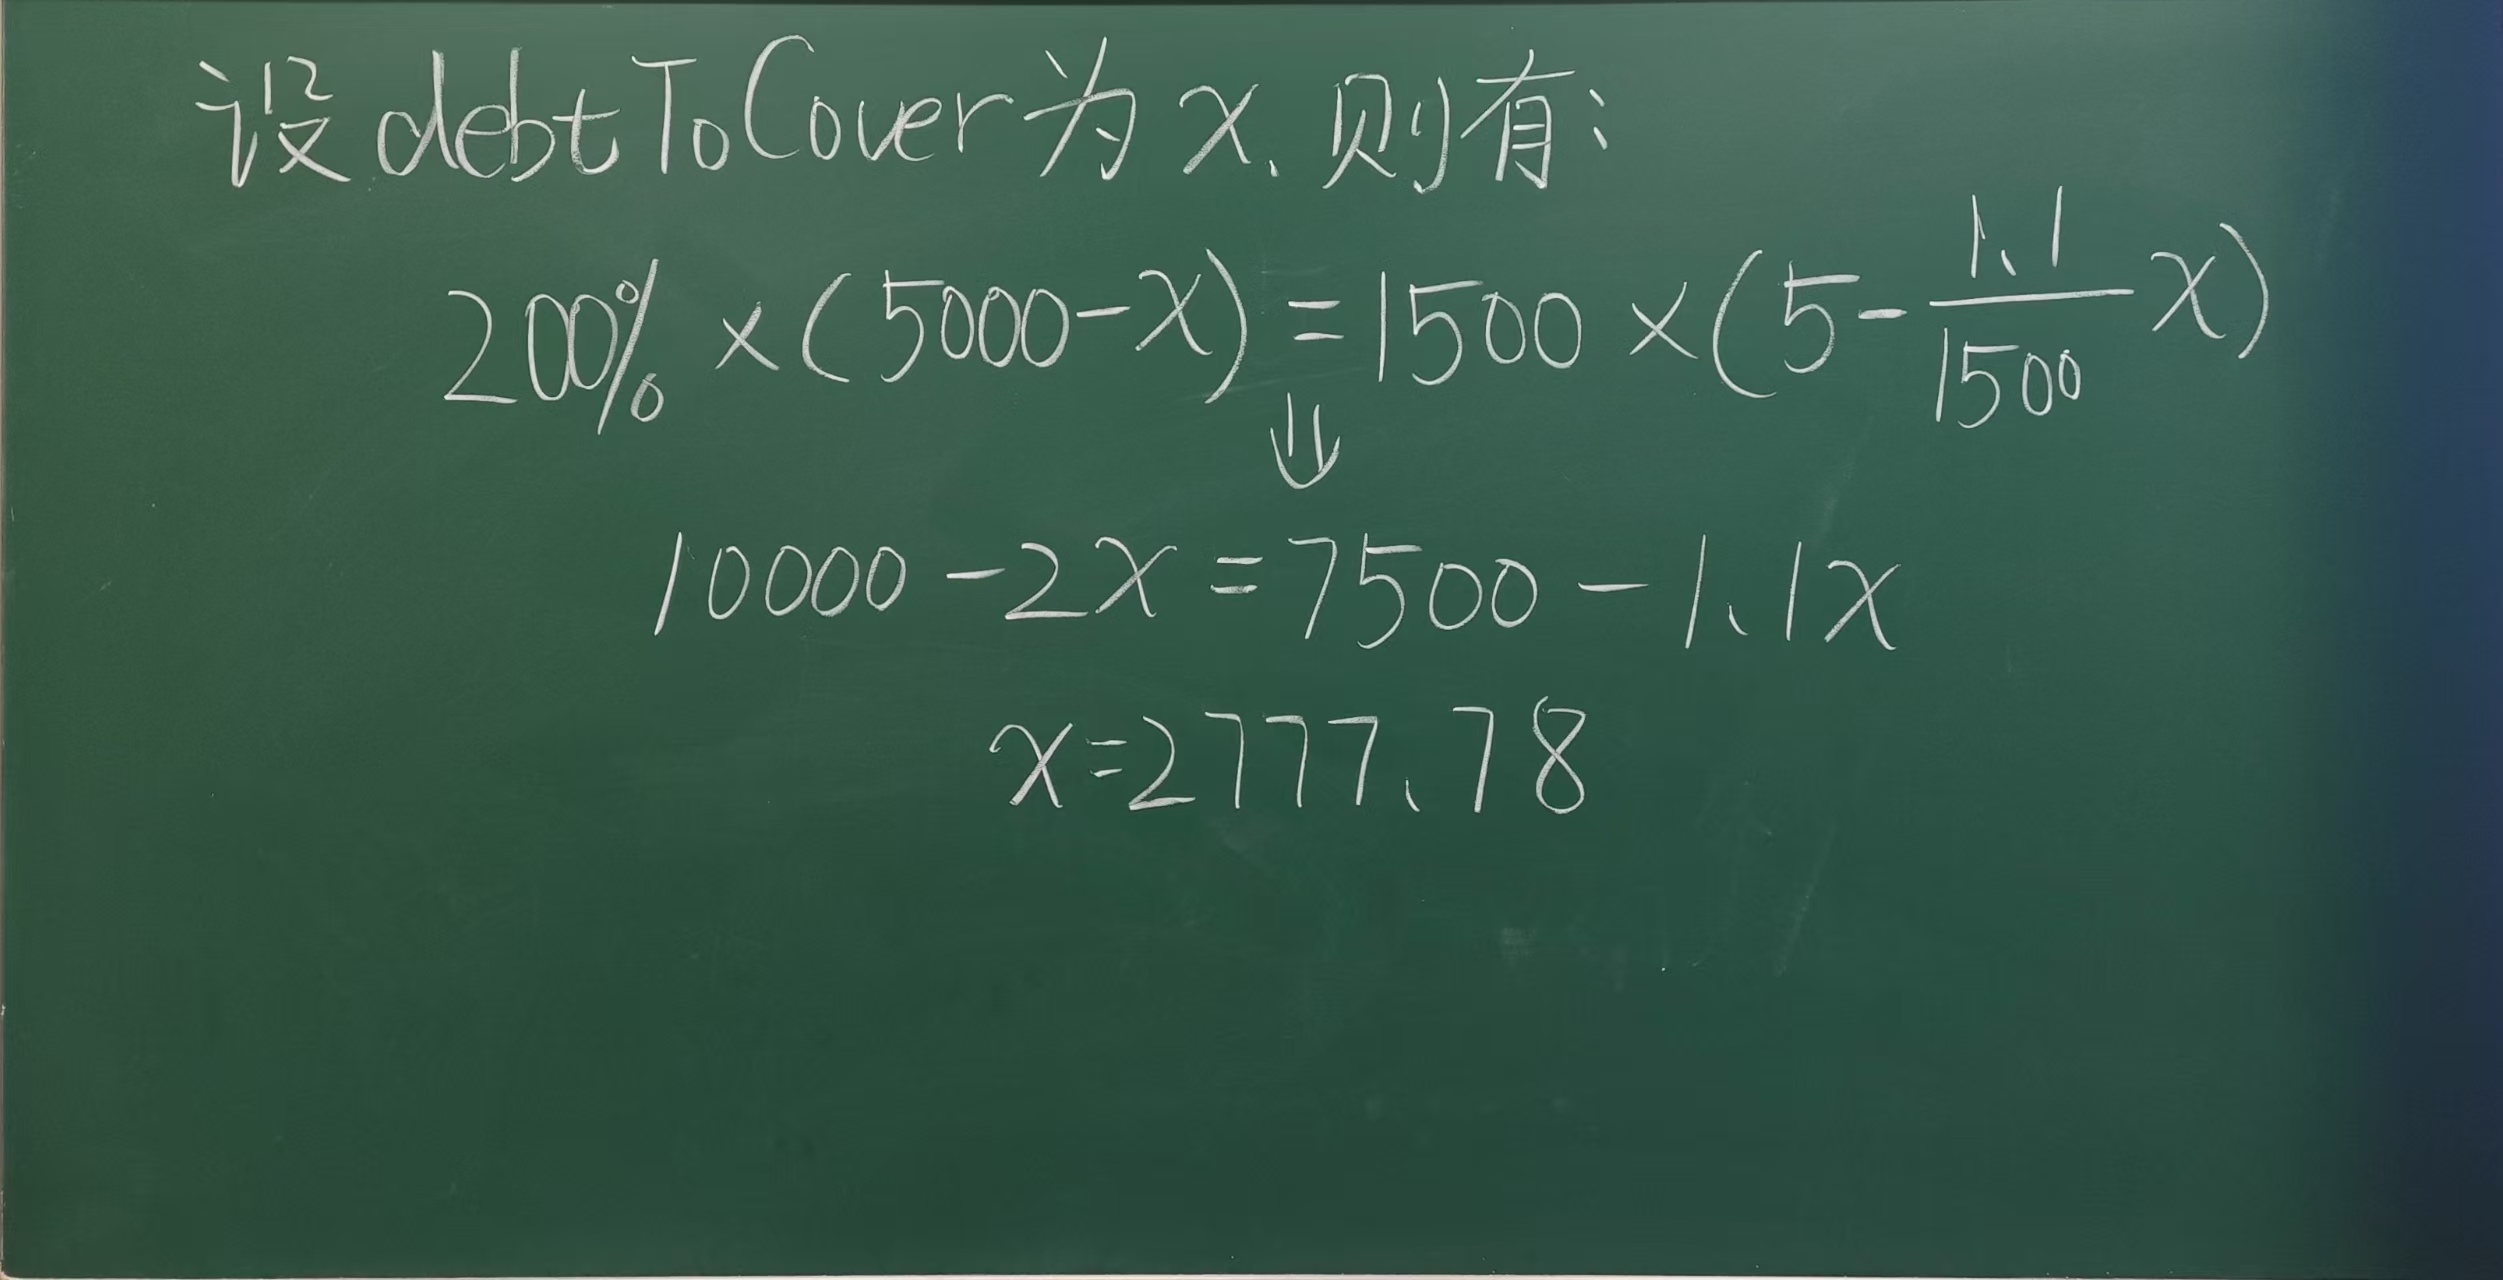 设debtToCover为x.则有:
200%×(5000-x)=1500×(5-\frac{1.1}{1500}x)
⇓
10000-2x=7500-1.1x
x=2777.78